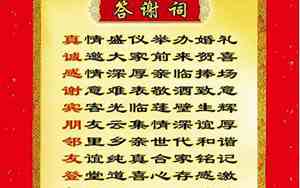 答谢词
真情盛仪举办婚礼
诚邀大家前来贺喜
感情深厚亲临捧场
谢意难表敬酒致意
宾客光临蓬壁生辉
朋友云集情深谊厚
邻里乡亲世代和谐
友谊纯真合家铭记
登堂道喜心存感激